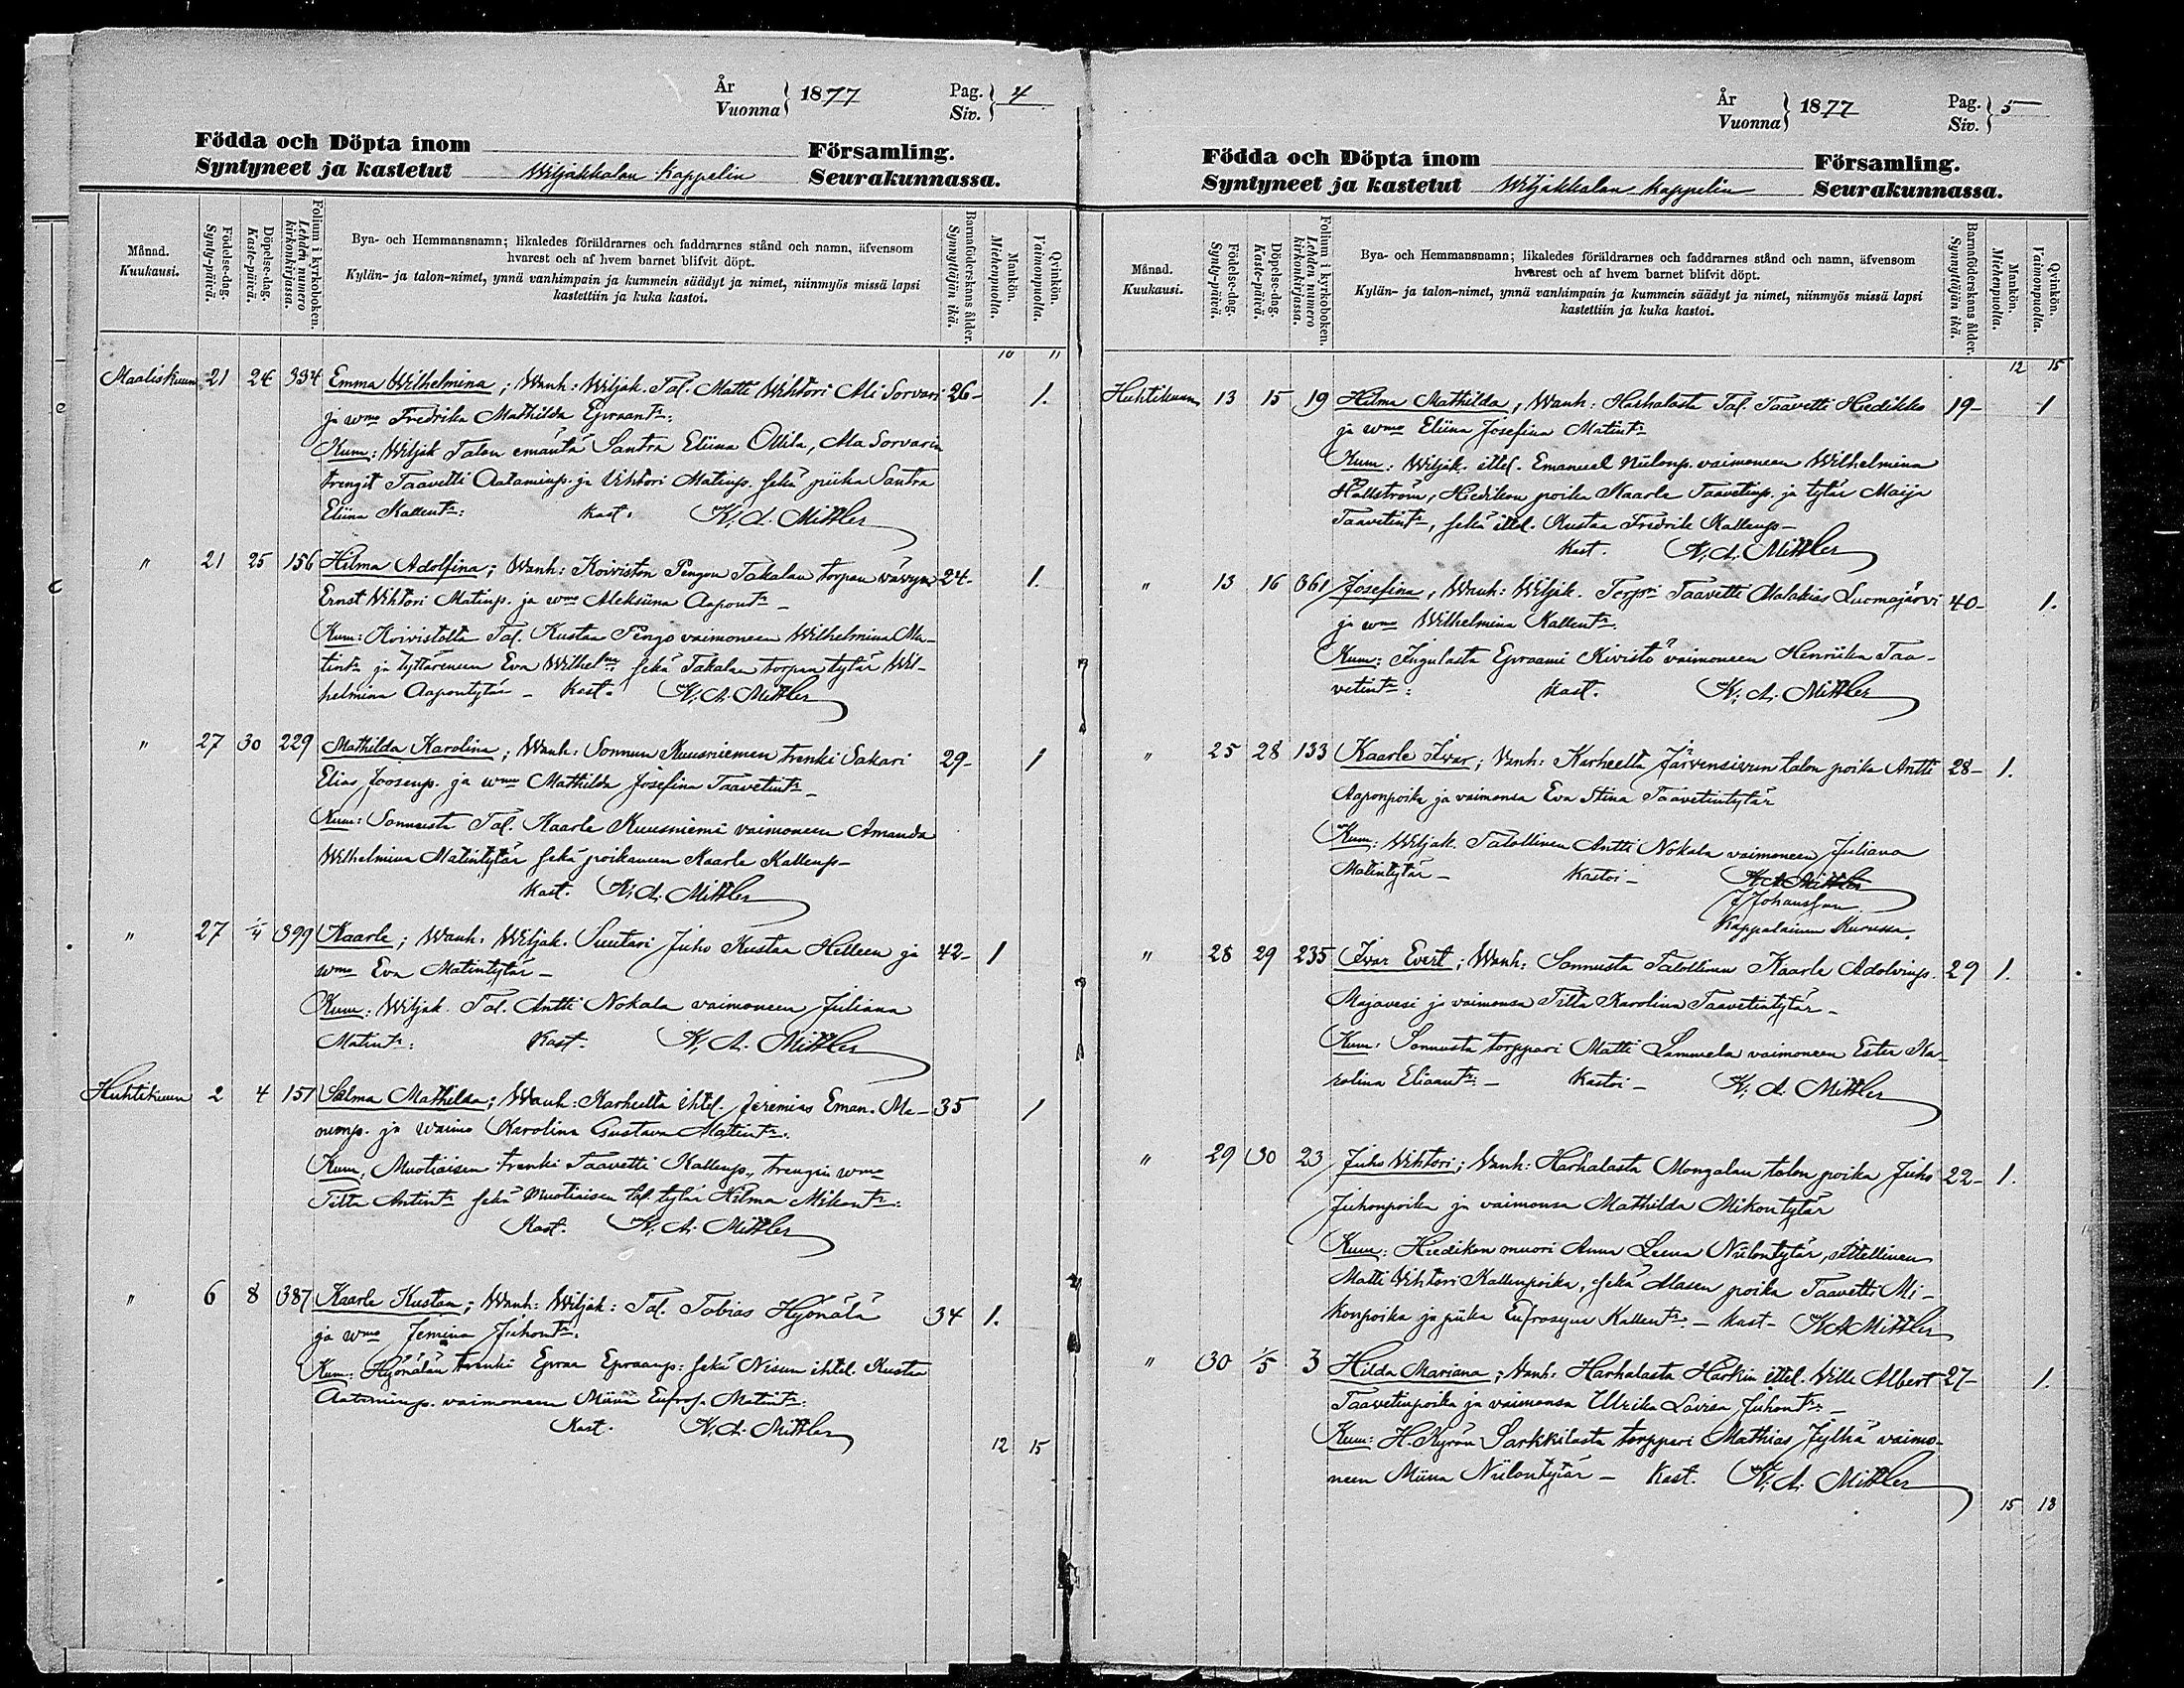 År
Vuonna } 1877
Pag.
Siv. } 4
Födda och Döpta inom
Församling.
Syntyneet ja kastetut Wiljakkalan Kappelin Seurakunnassa.
Månad.
Kuukausi.
Födelse-dag.
Synty-päivä.
Döpelse-dag.
Kaste-päivä.
Folium i kyrkoboken.
Lehden numero
kirkonkirjassa.
Bya- och Hemmansnamn; likaledes föräldrarnes och faddrarnes stånd och namn, äfvensom
hvarest och af hvem barnet blifvit döpt.
Kylän- ja talon-nimet, ynnä vanhimpain ja kummein säädyt ja nimet, niinmyös missä lapsi
kastettiin ja kuka kastoi.
Barnaföderskans ålder.
Synnyttäjän ikä.
Mankön.
Miehenpuolia.
Qvinkön.
Vaimonpuolia.
10 11
Maaliskuun 21 24 334 Emma Wilhelmina; Wanh: Wiljak. Tal. Matti Wihtori Ali Sorvari 26- 1.
ja wmo Fredrika Mathilda Eprant:
Kum: Wiljak Talon emäntä Santra Eliina Ollila, Ala Sorvarin
trengit Taavetti Aataminp. ja Vihtori Matinp. sekä piika Santra
Eliina Kallent: Kast. K. A. Mittler
" 21 25 156 Hilma Adolfina; Wanh: Koiviston Pengon Takalan torpan vävyn 24- 1.
Ernst Wihtori Matinp. ja wmo Aleksiina Aapont:
Kum: Koivistolta Tal. Kustaa Pengo vaimoneen Wilhelmina Ma-
tint: ja tyttäreneen Eva Wilhel: sekä Takalan torpan tytär Wil-
helmina Aapontytär - Kast. K. A. Mittler
" 27 30 229 Mathilda Karolina; Wanh: Sonnun Kuusniemen trenki Sakari 29- 1
Elias Joosenp. ja wmo Mathilda Josefina Taavetint:
Kum: Sonnusta Tal. Kaarle Kuusniemi vaimoneen Amanda
Wilhelmina Matintytär sekä poikaneen Kaarle Kallenp-
Kast. K. A. Mittler
" 27 1/4 399 Kaarle; Wanh: Wiljak. Suutari Juho Kustaa Helleen ja 42- 1
wmo Eva Matintytär -
Kum: Wiljak. Tal. Antti Nokala vaimoneen Juliana
Matint: Kast. K. A. Mittler
Huhtikuun 2 4 151 Salma Mathilda; Wanh: Karheelta ittel. Jeremias Eman. Ma- 35 1
nemp. ja waimo Karolina Gustava Matint:
Kum. Muotiaisen trenki Taavetti Kallenp., trengin wmo
Titta Antint: sekä Muotiaisen tal. tytär Hilma Mikont:
Kast. K. A. Mittler
" 6 8 387 Kaarle Kustaa; Wanh: Wiljak: Tal. Tobias Hyönälä 34 1.
ja wmo Jemina Juhont:
Kum: Hyönälän trenki Epraa Epraanp: sekä Nisun ittel. Kustaa
Aataminp. vaimoneen Miina Eufros. Matint:
Kast. K. A. Mittler
12 15
År
Vuonna } 1877
Pag.
Siv. } 5
Födda och Döpta inom
Församling.
Syntyneet ja kastetut Wiljakkalan kappelin Seurakunnassa.
Månad.
Kuukausi.
Födelse-dag.
Synty-päivä.
Döpelse-dag.
Kaste-päivä.
Folium i kyrkoboken.
Lehden numero
kirkonkirjassa.
Bya- och Hemmansnamn; likaledes föräldrarnes och faddrarnes stånd och namn, äfvensom
hvarest och af hvem barnet blifvit döpt.
Kylän- ja talon-nimet, ynnä vanhimpain ja kummein säädyt ja nimet, niinmyös missä lapsi
kastettiin ja kuka kastoi.
Barnaföderskans ålder.
Synnyttäjän ikä.
Mankön.
Miehenpuolia.
Qvinkön.
Vaimonpuolia.
12 15
Huhtikuun 13 15 19 Hilma Mathilda; Wanh: Harhalasta Tal. Taavetti Hiedikko 19- 1
ja wmo Eliina Josefina Matint:
Kum: Wiljak. ittel. Emanuel Niilonp. vaimoneen Wilhelmina
Hallström, Hiedikon poika Kaarle Taavetinp. ja tytär Maija
Taavetint:, sekä ittel. Kustaa Fredrik Kallenp-
Kast. K. A. Mittler
" 13 16 361 Josefina; Wanh: Wiljak. Torpri Taavetti Malakias Luomajärvi 40- 1.
ja wmo Wilhelmina Kallent:
Kum: Ingulasta Epraami Kivistö vaimoneen Henriika Taa-
vetint: Kast. K. A. Mittler
" 25 28 133 Kaarle Ivar; Vanh: Karheelta Järvensivun talon poika Antti 28- 1.
Aaponpoika ja vaimonsa Eva Stina Taavetintytär
Kum: Wiljak. Talollinen Antti Nokala vaimoneen Juliana
Matintytär - Kastoi - K A Mittler
J Johansson
Kappalainen Kurussa.
" 28 29 235 Ivar Evert; Wanh: Sonnusta Talollinen Kaarle Adolvinp. 29 1.
Majavesi ja vaimonsa Titta Karolina Taavetintytär -
Kum: Sonnusta torppari Matti Lammela vaimoneen Ester Ka-
rolina Eliaant: - Kastoi - K. A. Mittler
" 29 30 23 Juho Vihtori; Vanh: Harhalasta Mongalan talon poika Juho 22- 1.
Juhonpoika ja vaimonsa Mathilda Mikontytär
Kum: Hiedikon muori Anna Leena Niilontytär, ittellinen
Matti Vihtori Kallenpoika, sekä Alasen poika Taavetti Mi-
konpoika ja piika Eufrosyne Kallent: - Kast - K A Mittler
" 30 1/5 3 Hilda Mariana; Vanh: Harhalasta Härkin ittel. Wille Albert 27- 1.
Taavetinpoika ja vaimonsa Ulrika Lovisa Juhont: -
Kum: H. Kyrön Sarkkilasta torppari Mathias Jylhä vaimo-
neen Miina Niilontytär - Kast. K. A. Mittler
15 18